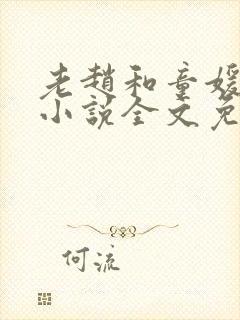 老趙和童媛
小說全文免
何流